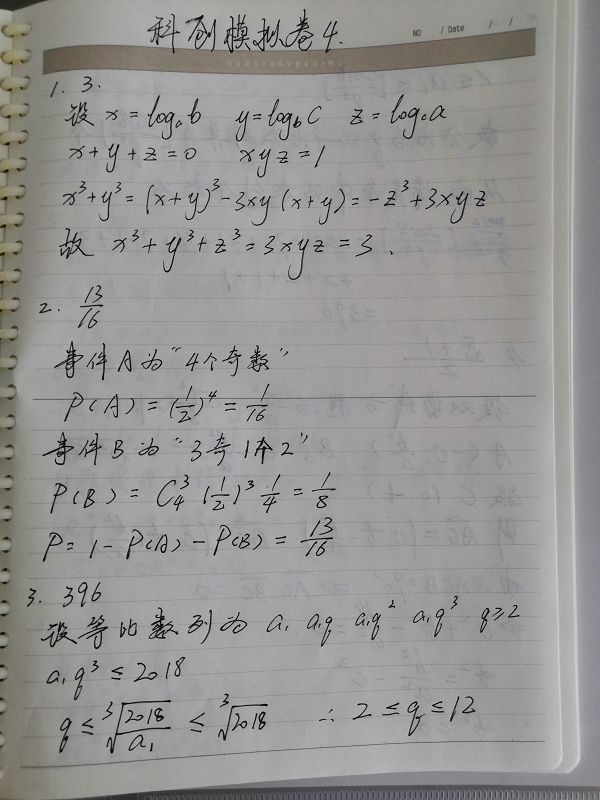 科创模拟卷4.
NO / Date / /
OURSTORYBEGINS
1. 3.
设 x = logₐb y = log_b c z = log_c a
x + y + z = 0 xyz = 1
x³ + y³ = (x + y)³ - 3xy (x + y) = -z³ + 3xyz
故 x³ + y³ + z³ = 3xyz = 3.
2. 13/16
事件A为“4个奇数”
P(A) = (1/2)⁴ = 1/16
事件B为“3奇1个2”
P(B) = C₄³ (1/2)³ 1/4 = 1/8
P = 1 - P(A) - P(B) = 13/16
3. 396
设等比数列为 a₁ a₁q a₁q² a₁q³ q≥2
a₁q³ ≤ 2018
q ≤ ∛(2018/a₁) ≤ ∛2018 ∴ 2 ≤ q ≤ 12